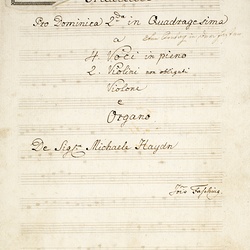 Pro Dominica 2da in Quadragesima
a
4 Voci in pieno
2 Violini non obligati
Violone
e
Organo
De Sigre Michaele Haydn